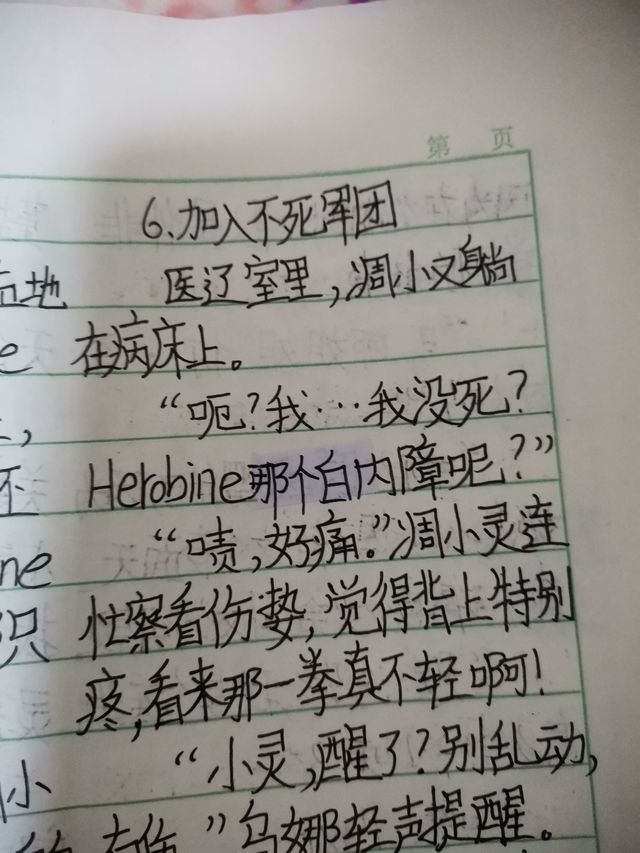 第 页
地
e
ne
只
小
6.加入不死军团
医辽室里，凋小又躺
在病床上。
“呃？我…我没死？
Herobine那个白内障呢？”
“啧，好痛。”凋小灵连
忙察看伤势，觉得背上特别
疼，看来那一拳真不轻啊！
“小灵，醒了？别乱动，
有伤”乌娜轻声提醒。